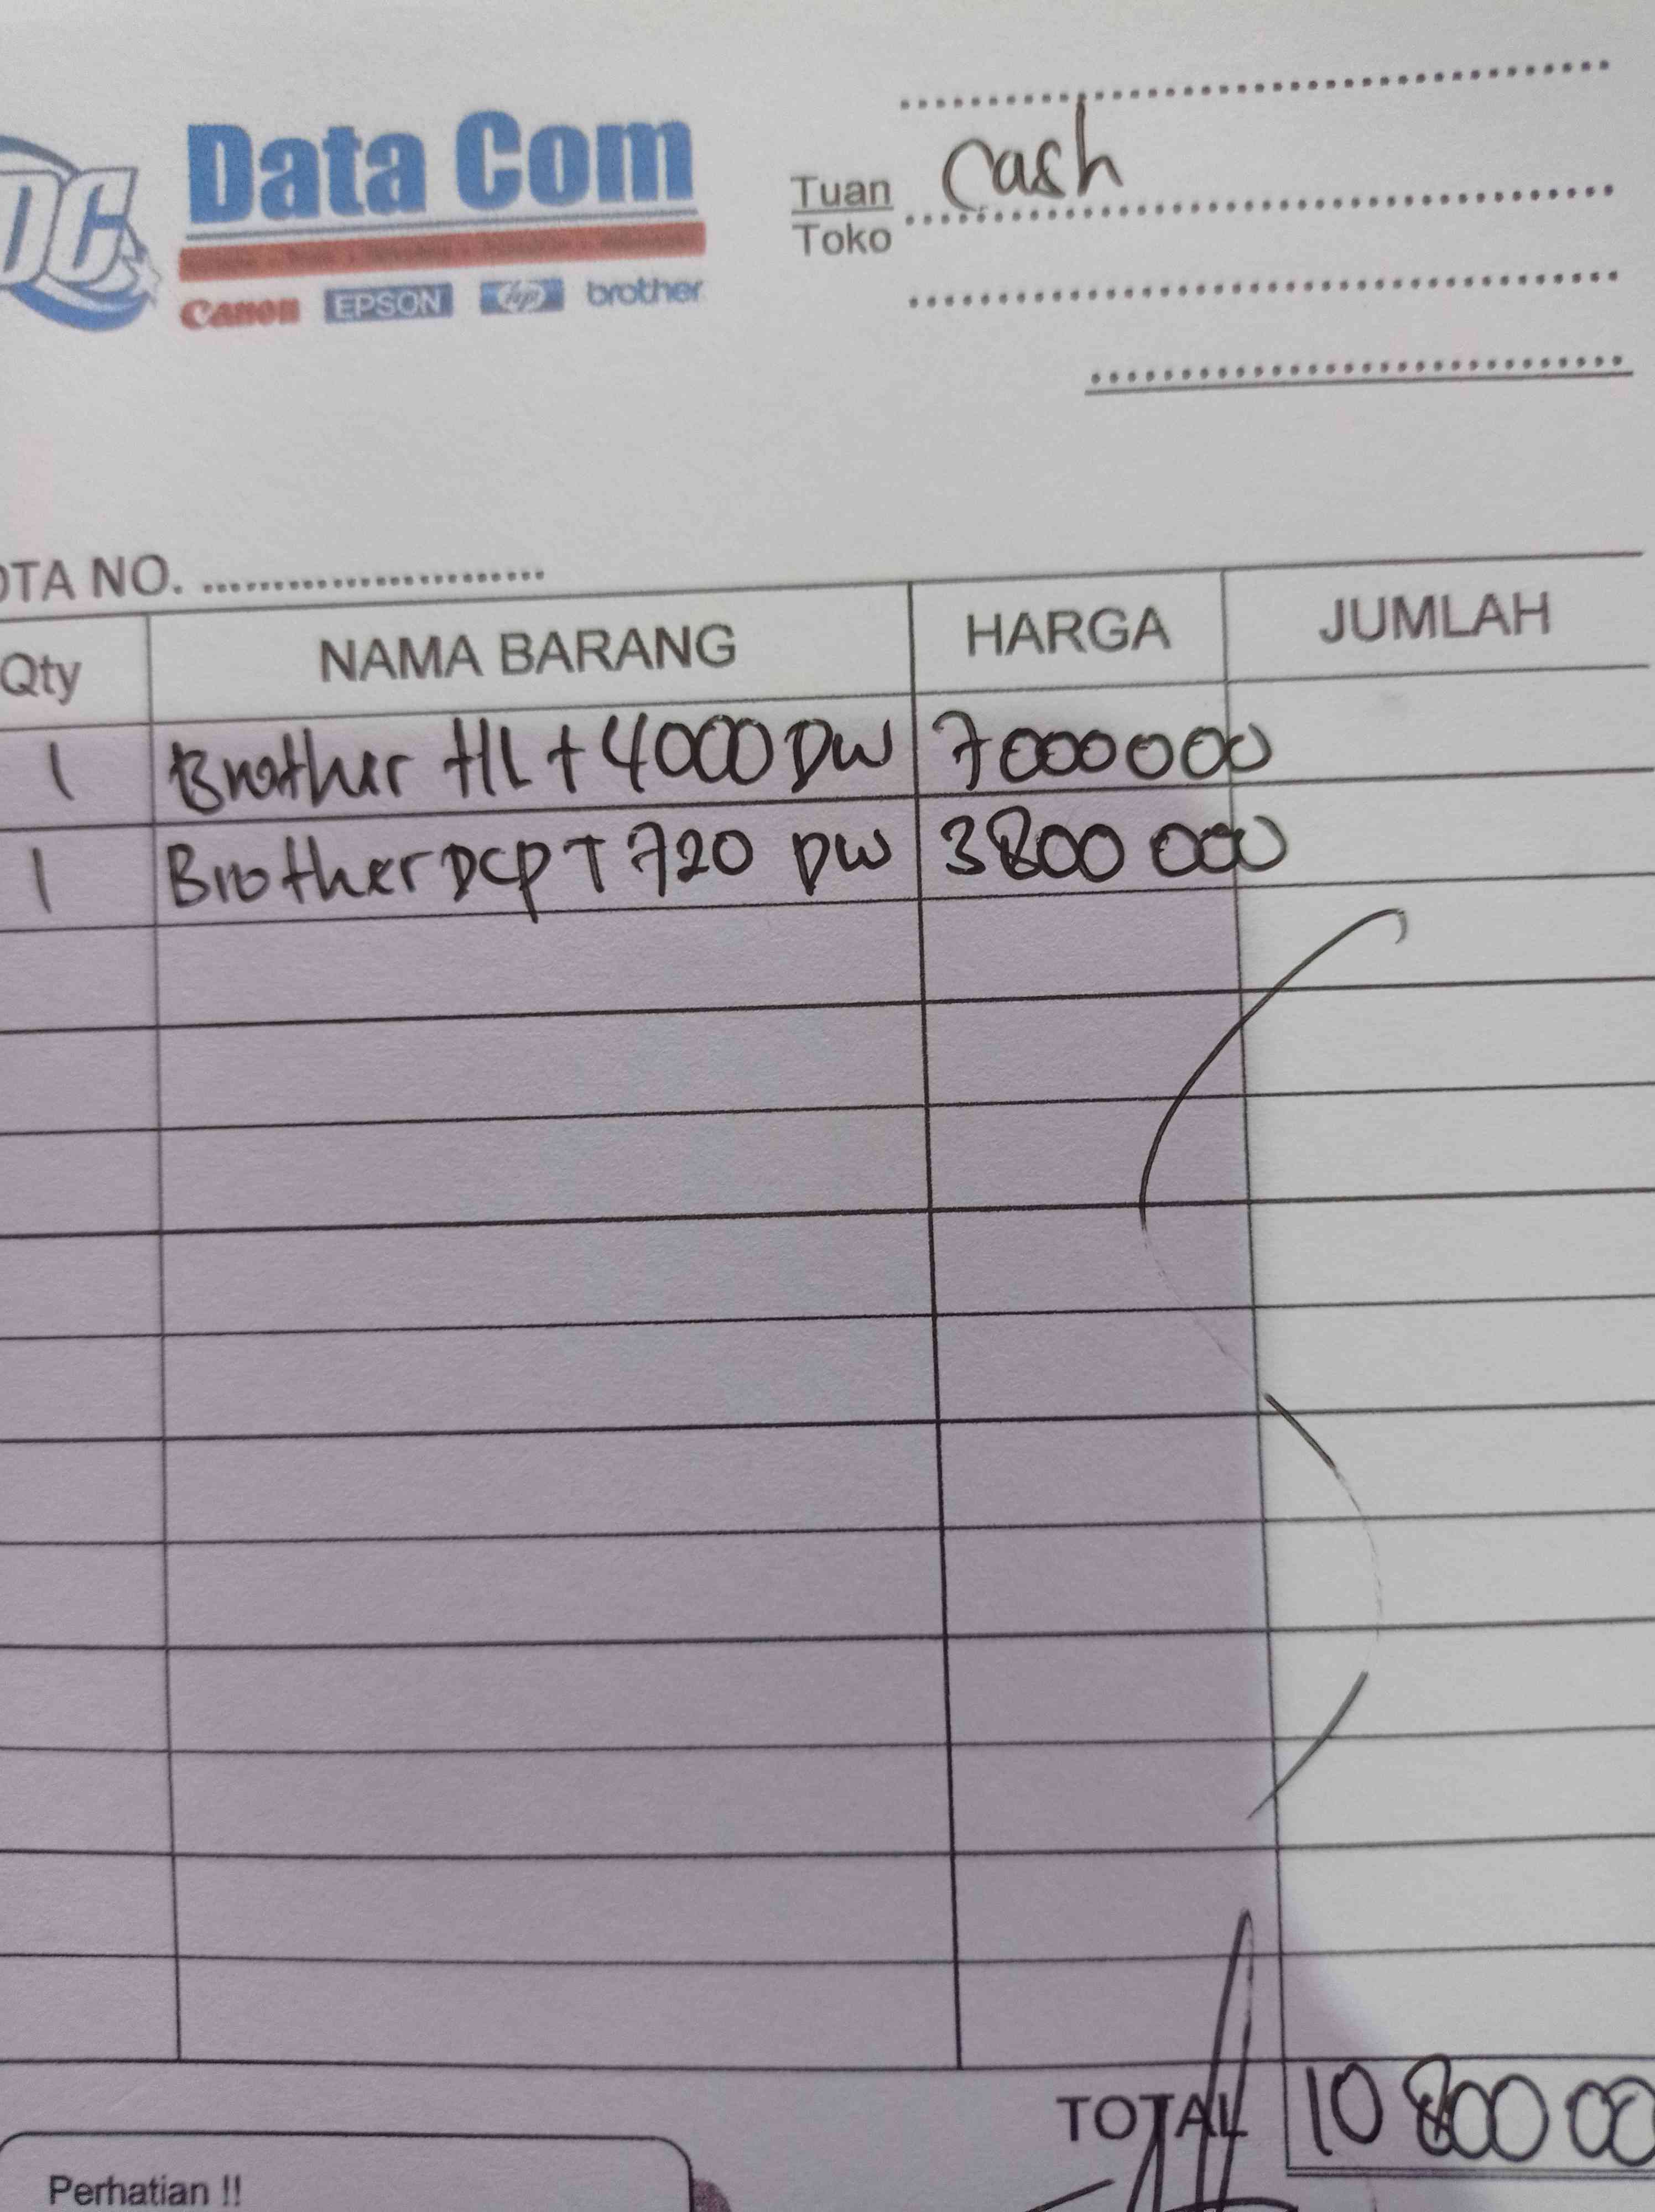 DC
Data Com
Canon EPSON hp brother
Tuan Cash
Toko
OTA NO. ........................
Qty NAMA BARANG HARGA JUMLAH
1 Brother HL T 4000 DW 7000000
1 Brother DCP T 720 DW 3800 000
TOTAL 10 800 00
Perhatian !!